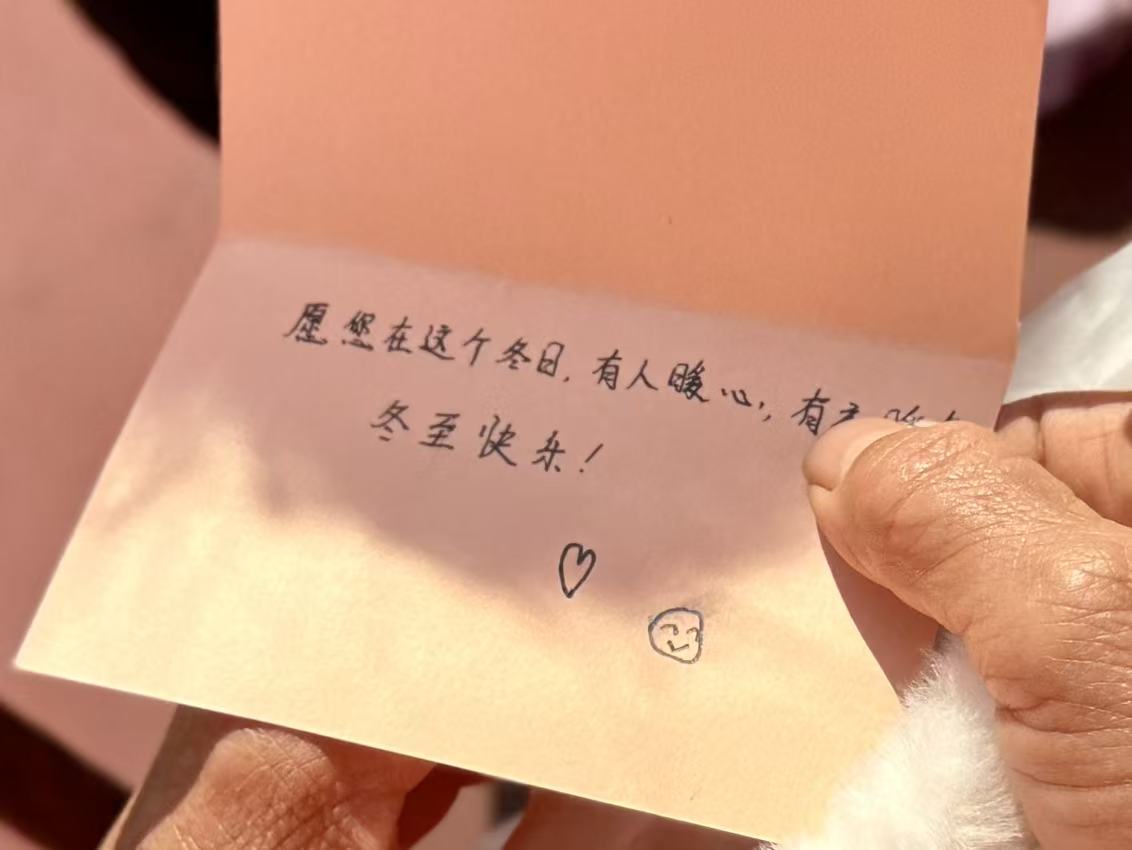 愿您在这个冬日,有人暖心,有
冬至快乐!